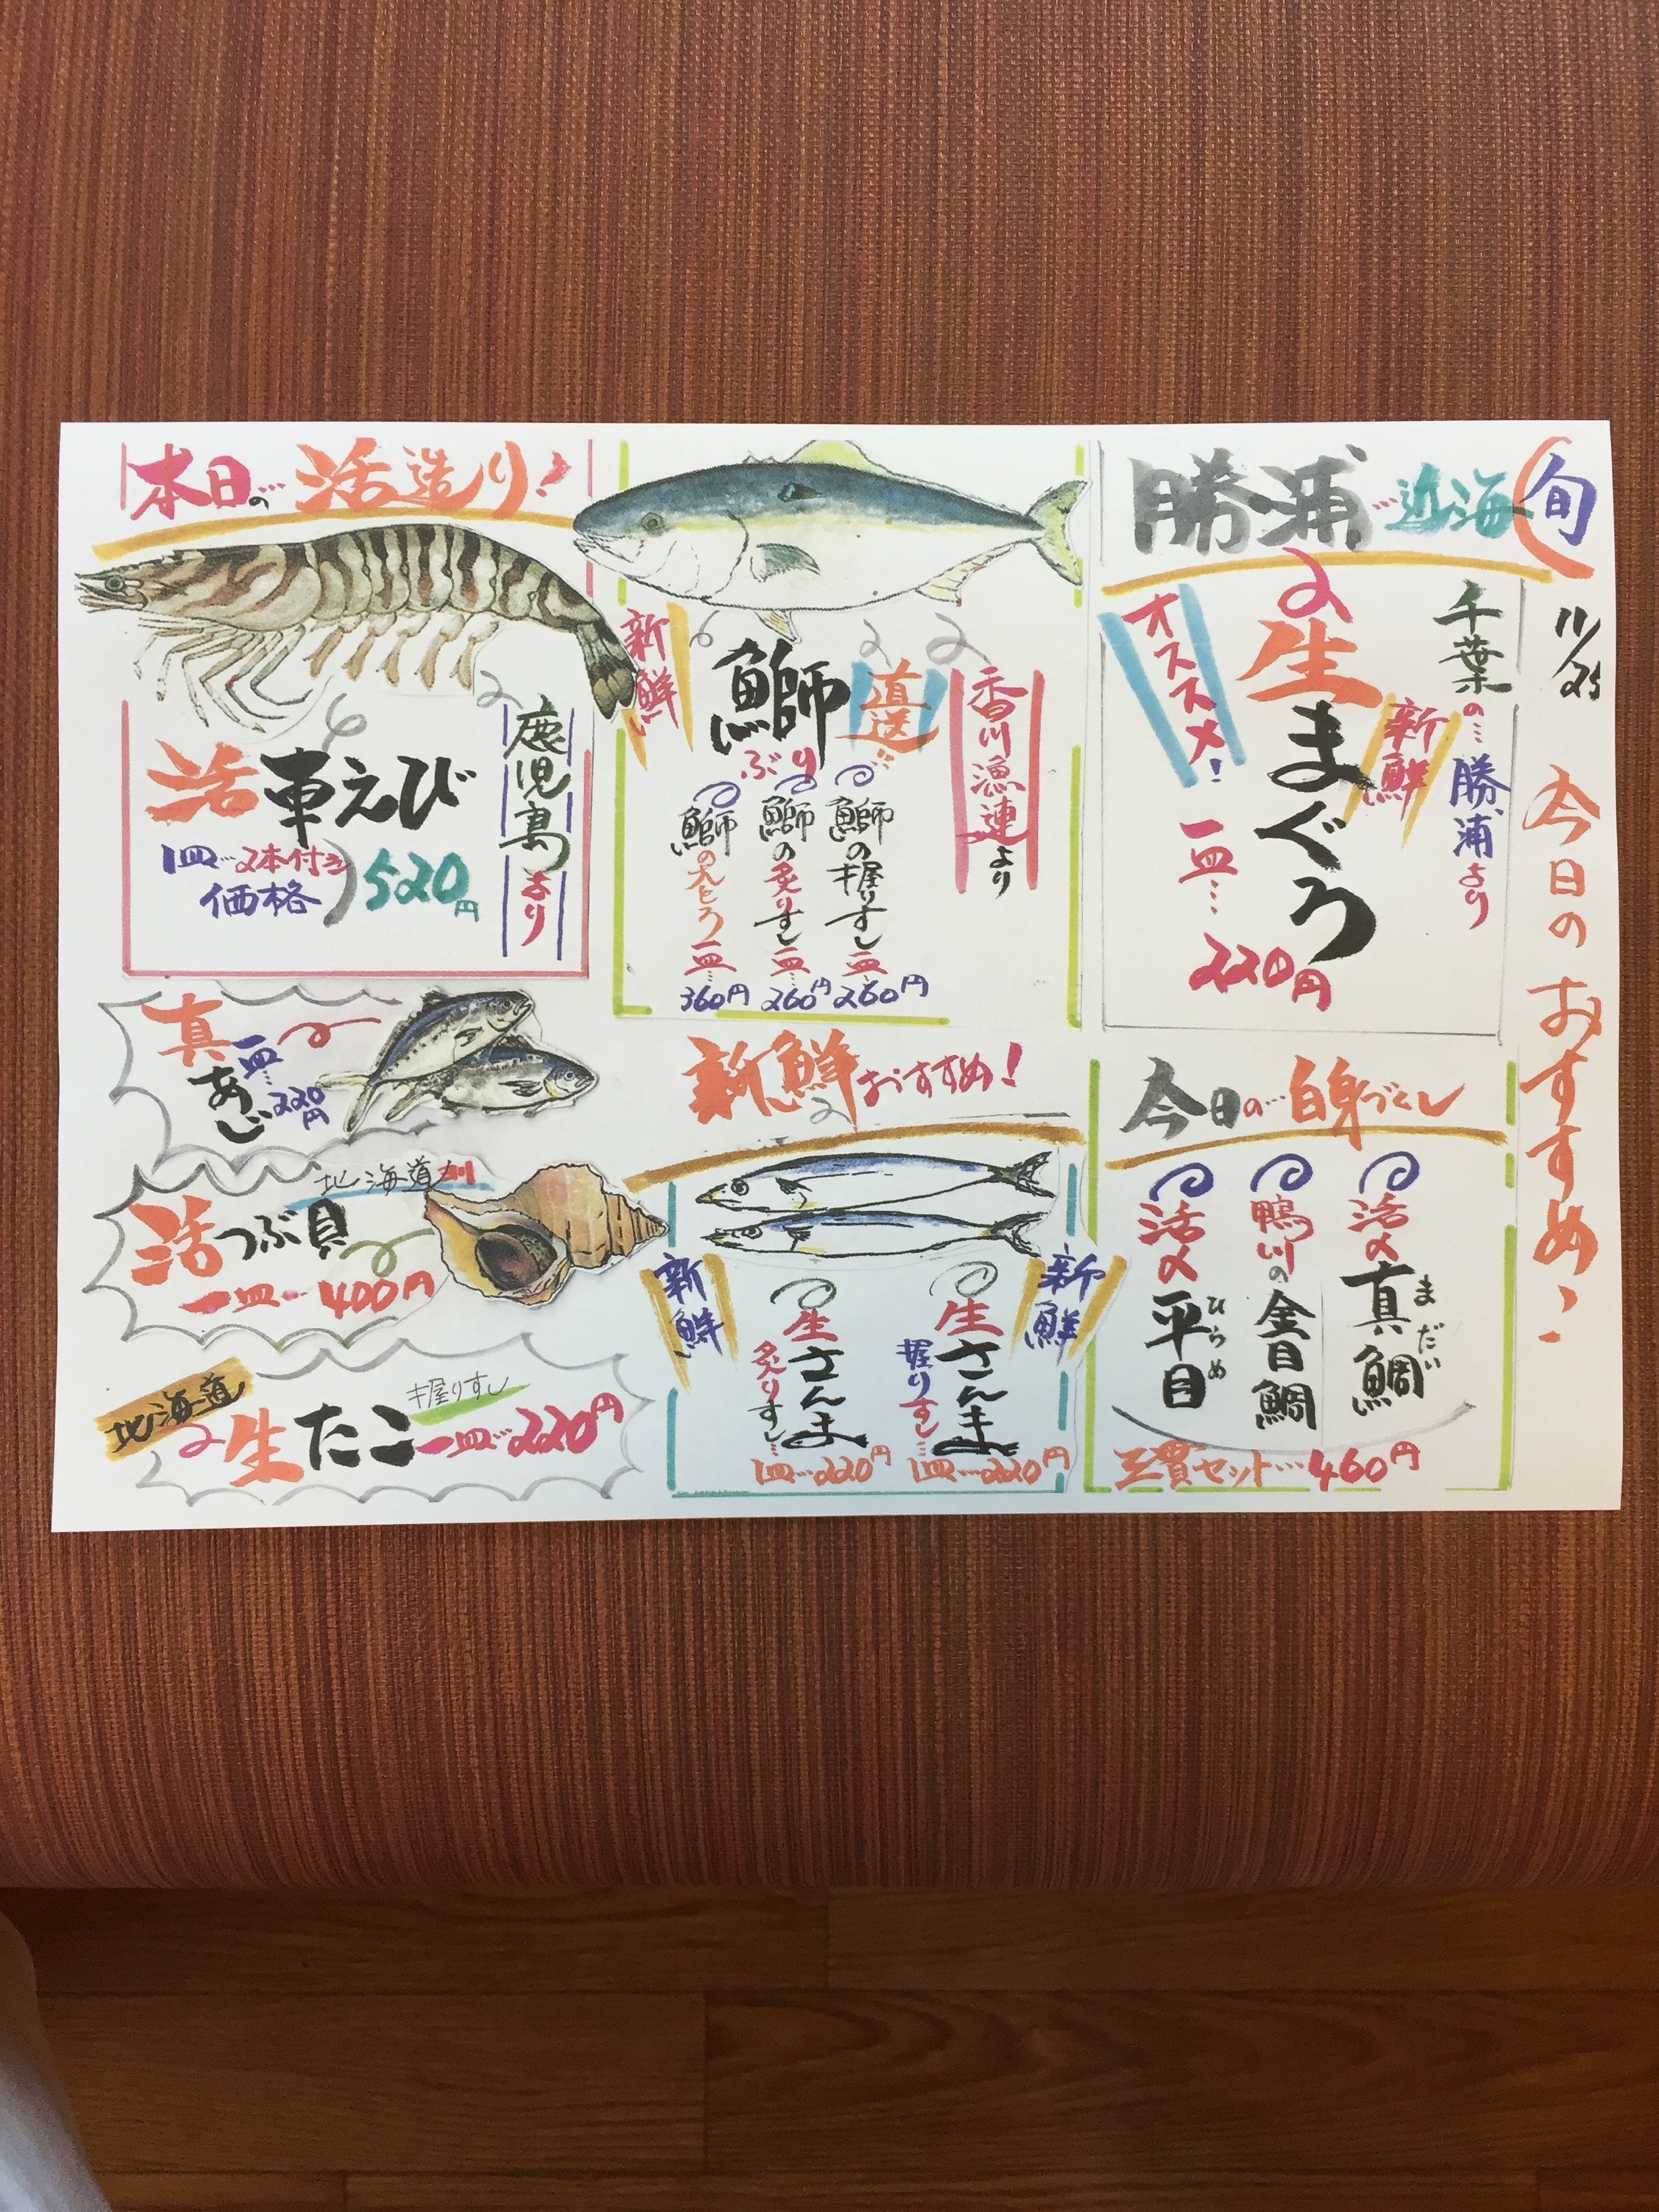 旬
11/25
今日のおすすめ、、
勝浦…近海
千葉の…勝浦より
新鮮
生まぐろ
オススメ！
一皿…
220円
今日の…白身づくし
活〆真鯛
まだい
鴨川の金目鯛
活〆平目
ひらめ
三貫セット…460円
香川漁連より
直送…
鰤
ぶり
新鮮
鰤の握りすし一皿…260円
鰤の炙りすし一皿…260円
鰤の大とろ一皿…360円
新鮮おすすめ！
新鮮
生さんま
握りすし…
1皿…220円
生さんま
炙りすし…
1皿…220円
新鮮
本日の…活造り！
鹿児島より
活車えび
1皿…2本付き
価格
520円
真あじ
一皿…220円
北海道
活つぶ貝
一皿…400円
北海道
生たこ
握りすし
一皿…220円